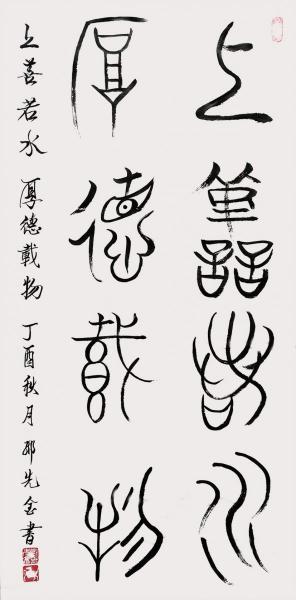 上善若水
厚德载物
上善若水 厚德载物 丁酉秋月 邢先金書